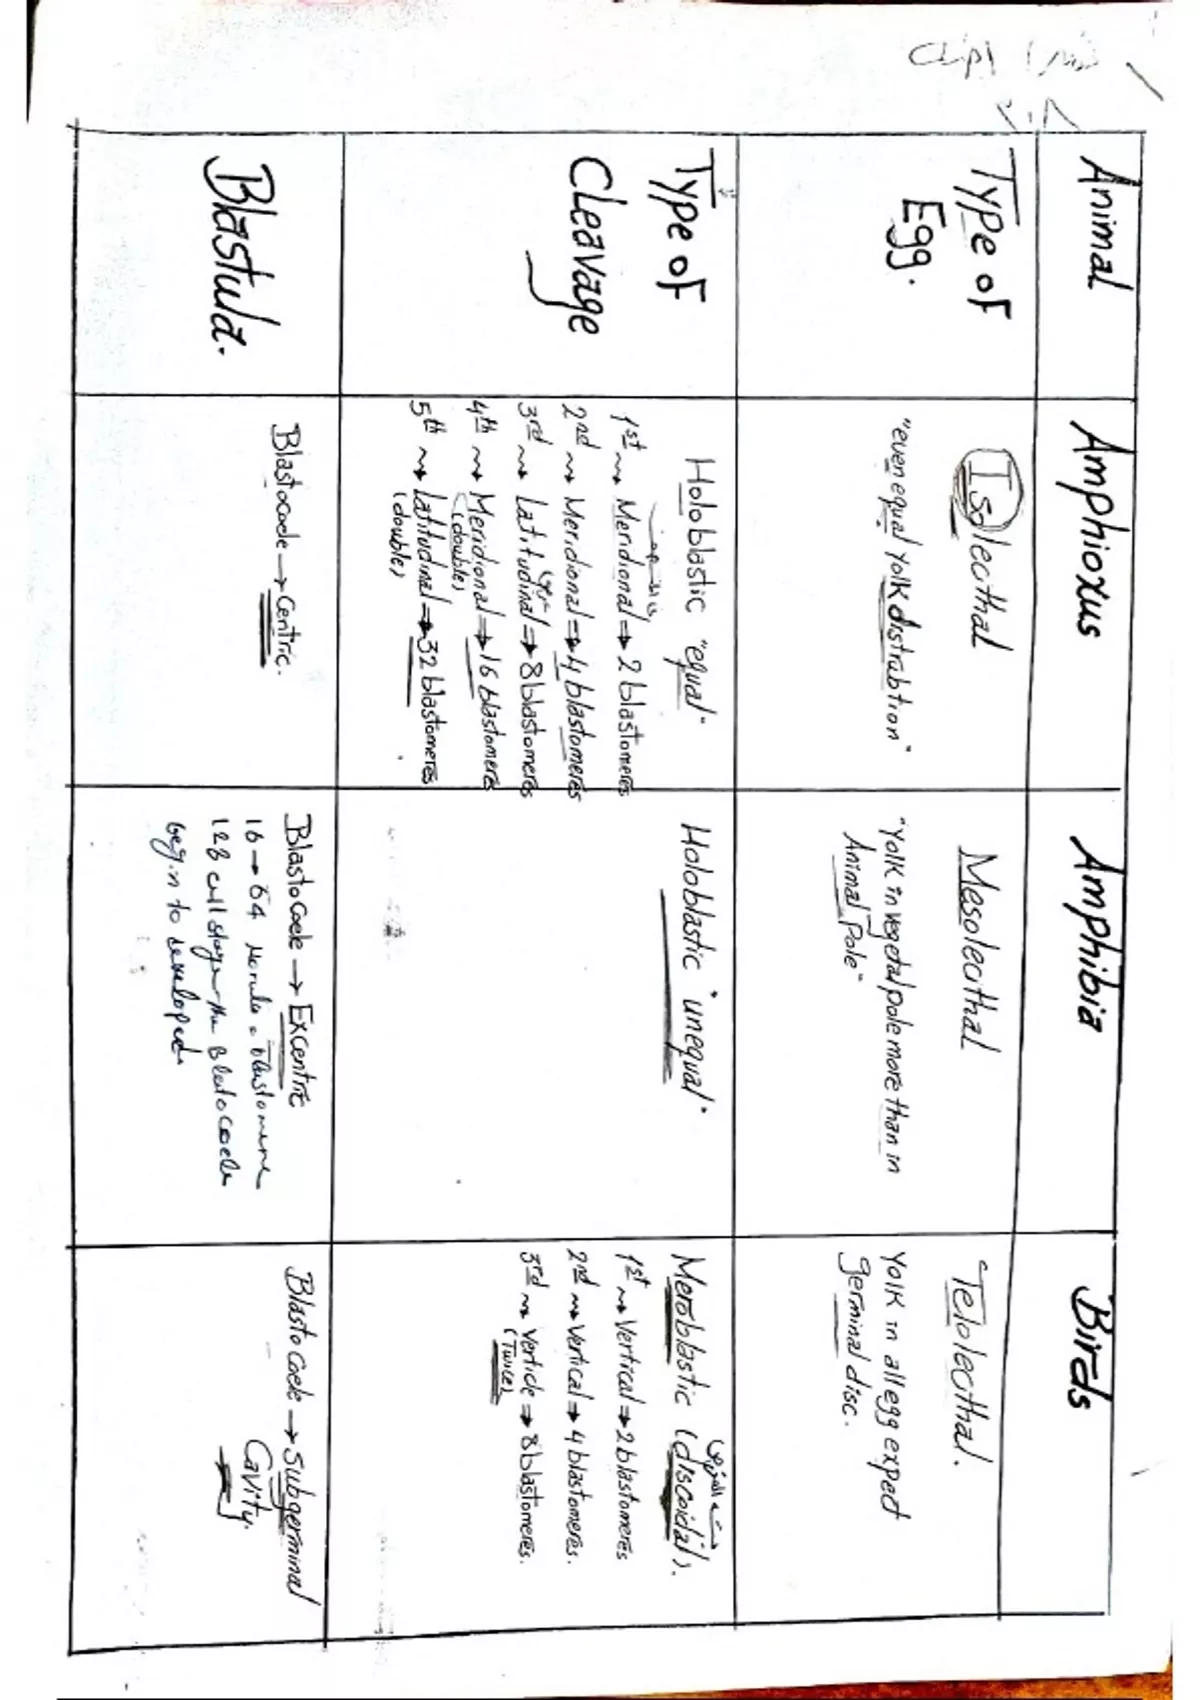 Animal
Amphioxus
Amphibia
Birds
Type of
Egg.
Isolecithal
"even equal Yolk distrabtion"
Mesolecithal
"Yolk in vegetal pole more than in
Animal Pole"
Telolecithal.
Yolk in all egg expect
germinal disc.
Type of
Cleavage
Holoblastic "equal"
1st → Meridional ⇒ 2 blastomeres
2nd → Meridional ⇒ 4 blastomeres
3rd → Latitudinal ⇒ 8 blastomeres
4th → Meridional ⇒ 16 blastomeres
(double)
5th → Latitudinal ⇒ 32 blastomeres
(double)
Holoblastic "unequal"
Meroblastic (discoidal).
1st → Vertical ⇒ 2 blastomeres
2nd → Vertical ⇒ 4 blastomeres.
3rd → Verticle ⇒ 8 blastomeres.
(Twice)
Blastula.
Blastocoele → Centric.
Blastocoele → Excentric
16 → 64 morula = blastomere
128 cell stage the Blastocoele
begin to developed
Blastocoele → Subgerminal
Cavity.